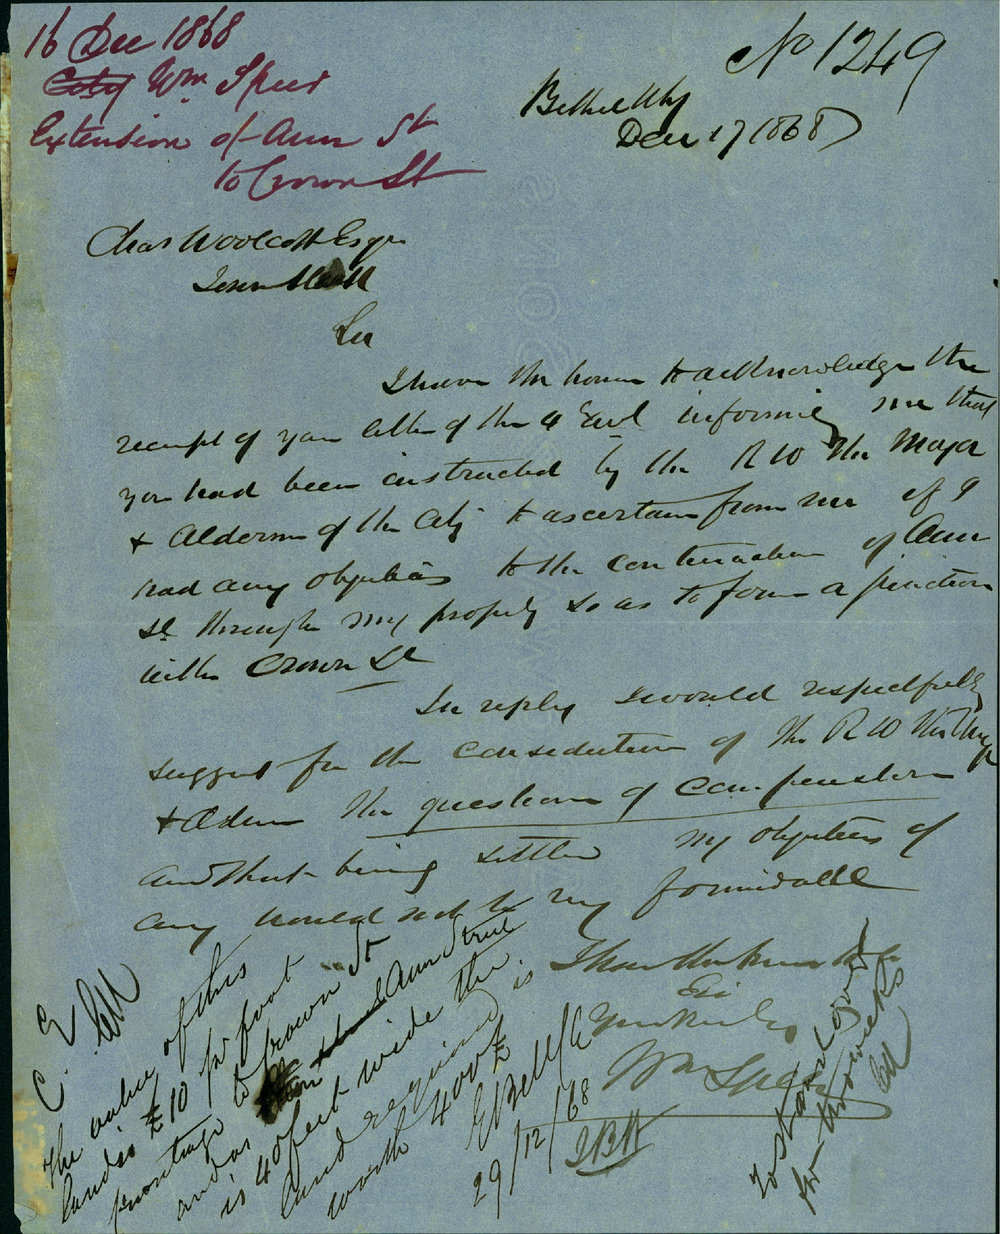 16 Dec 1868
City Wm Speer
Extension of Ann St
to Crown St
No 1249
Dec 17 1868
Chas Woolcott Esqr
Town Clerk
Sir
I have the honor to acknowledge the
receipt of your letter of the 4 Inst informing me that
you had been instructed by the R W the Mayor
& Aldermn of the City to ascertain from me if I
had any objections to the continuation of Ann
St through my property so as to form a junction
with Crown St
In reply I would respectfully
suggest for the consideration of the R W the Mayor
& Aldmn the question of compensation
and that being settled my objections if
any would not be very formidable
I have the honor to be
Sir
Your
Wm Speer
C. E.
The value of this
land is £10 per foot
frontage to Crown St
and as Ann Street
is 40 feet wide the
land required is
worth 400£
E Bell C E
29/12/68
to stand over
for two weeks